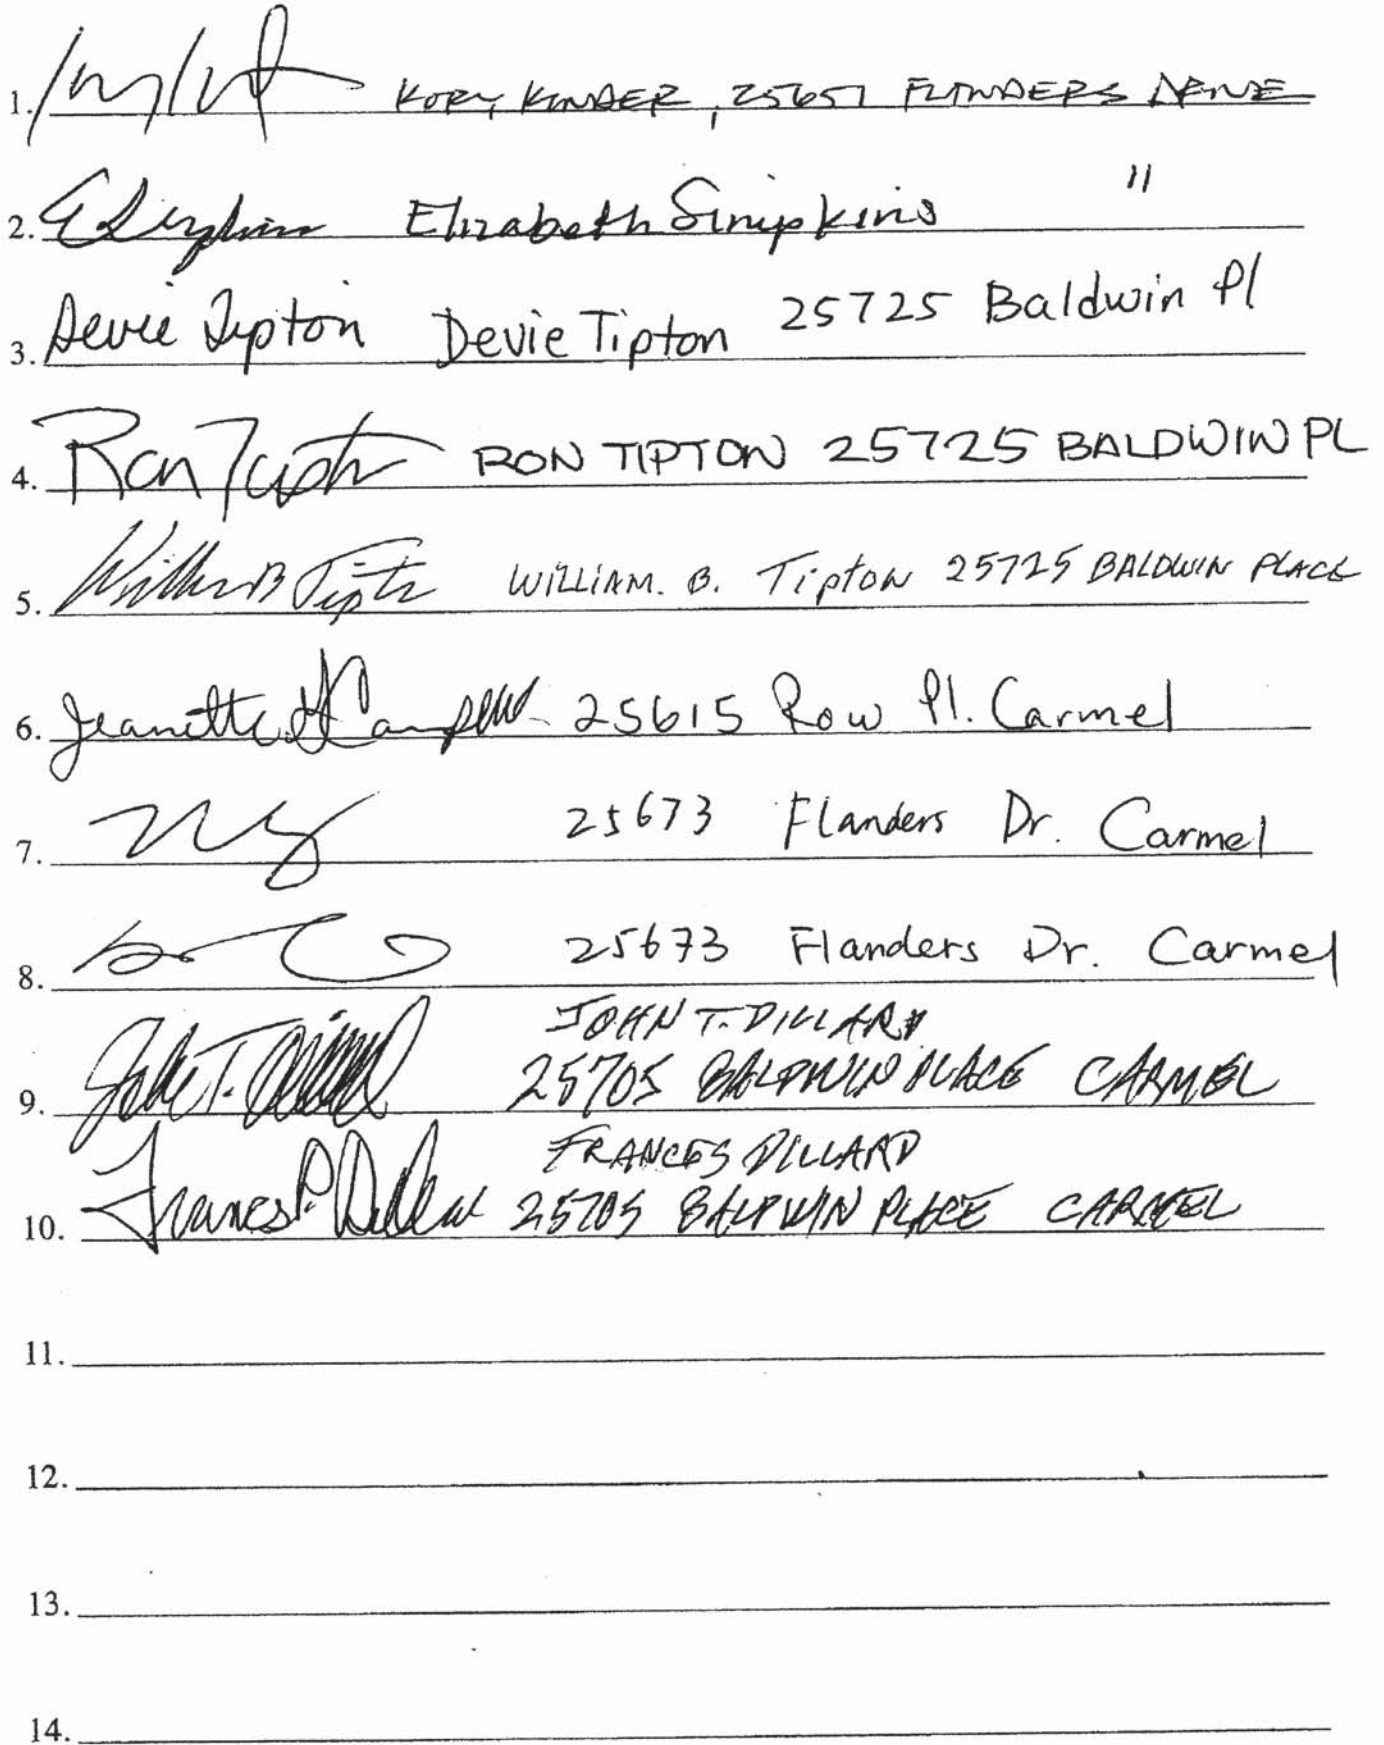 1. KORY KINDER, 25651 FLANDERS DRIVE
2. Elizabeth Simpkins "
3. Devie Tipton Devie Tipton 25725 Baldwin Pl
4. Ron Tipton RON TIPTON 25725 BALDWIN PL
5. William B Tipton WILLIAM. B. Tipton 25725 BALDWIN PLACE
6. Jeanette Campbell 25615 Row Pl. Carmel
7. 25673 Flanders Dr. Carmel
8. 25673 Flanders Dr. Carmel
JOHN T. DILLARD
9. John T. Dillard 25705 BALDWIN PLACE CARMEL
FRANCES DILLARD
10. Frances P. Dillard 25705 BALDWIN PLACE CARMEL
11.
12.
13.
14.